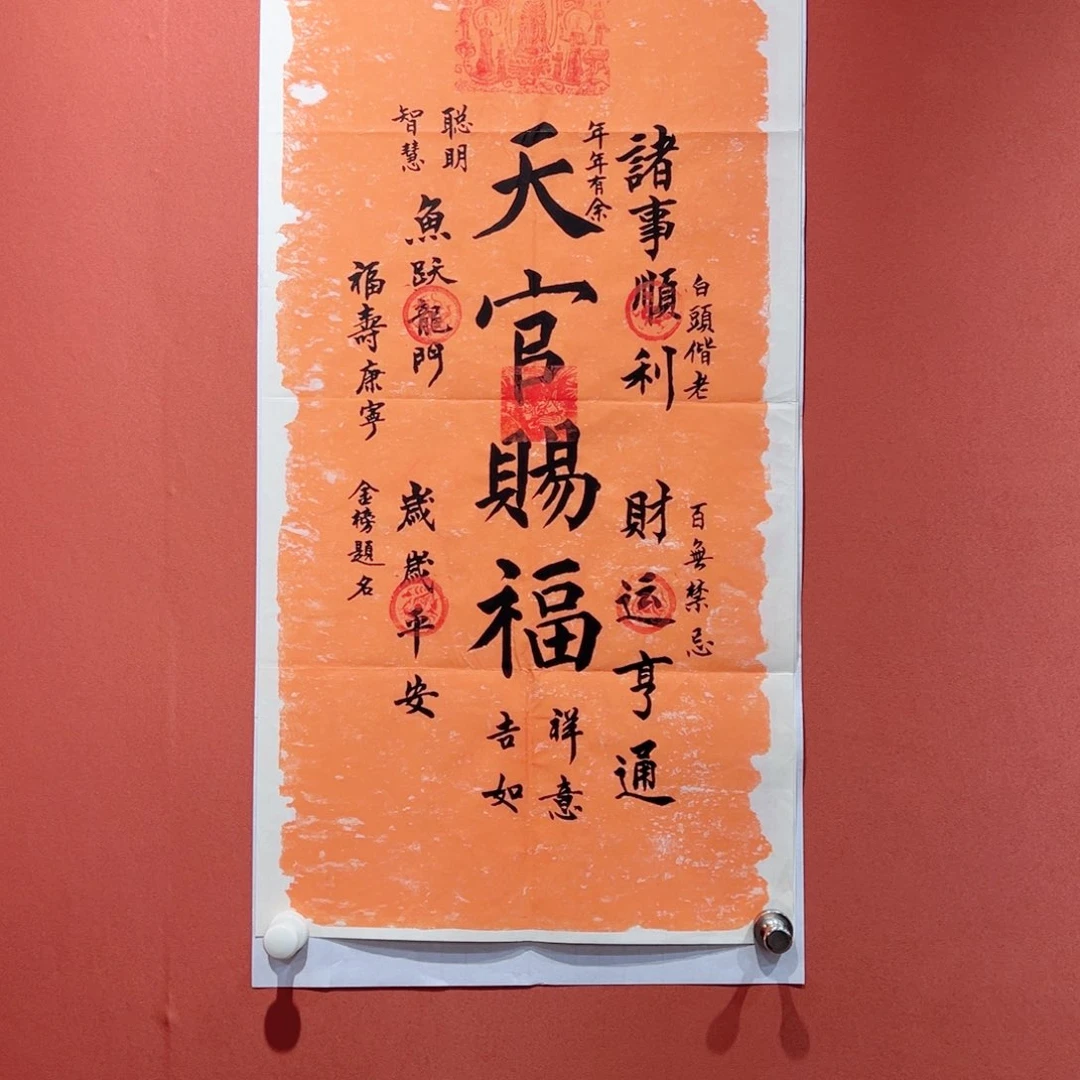 百無禁忌
白頭偕老
諸事順利
財运亨通
年年有余
天官賜福
祥意
吉如
聪明
智慧
魚跃龍門
歲歲平安
福壽康寧
金榜題名